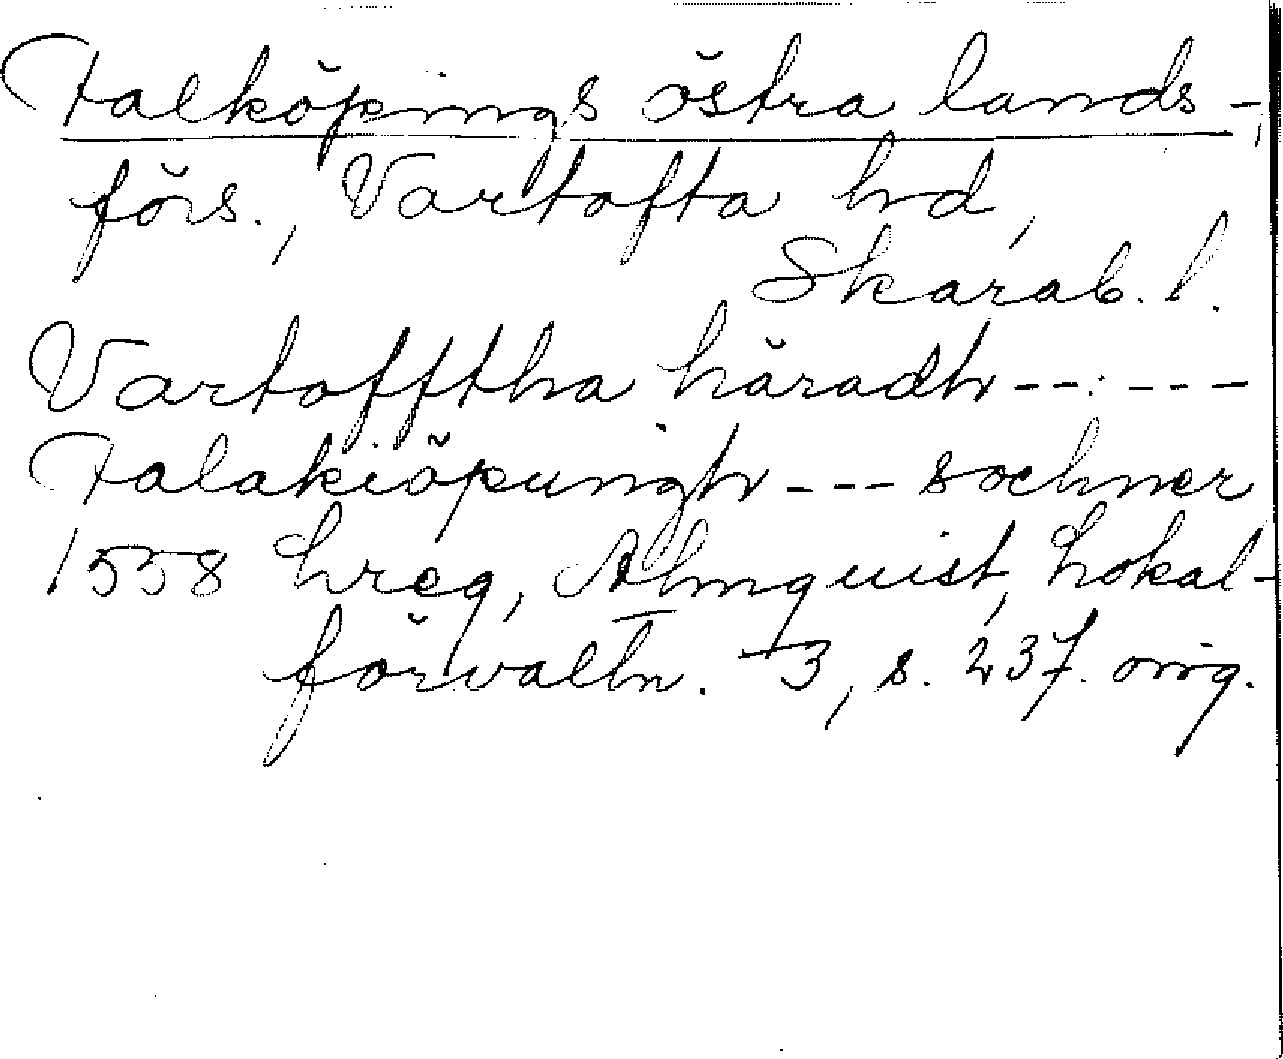 Falköpings östra lands-
förs., Vartofta hd,
Skarab. l.
Vartofftha häradh ------
Falakiöpungh --- sochner
1558 Lreg, Almquist, Lokal-
förvaltn. 3, s. 237. orig.